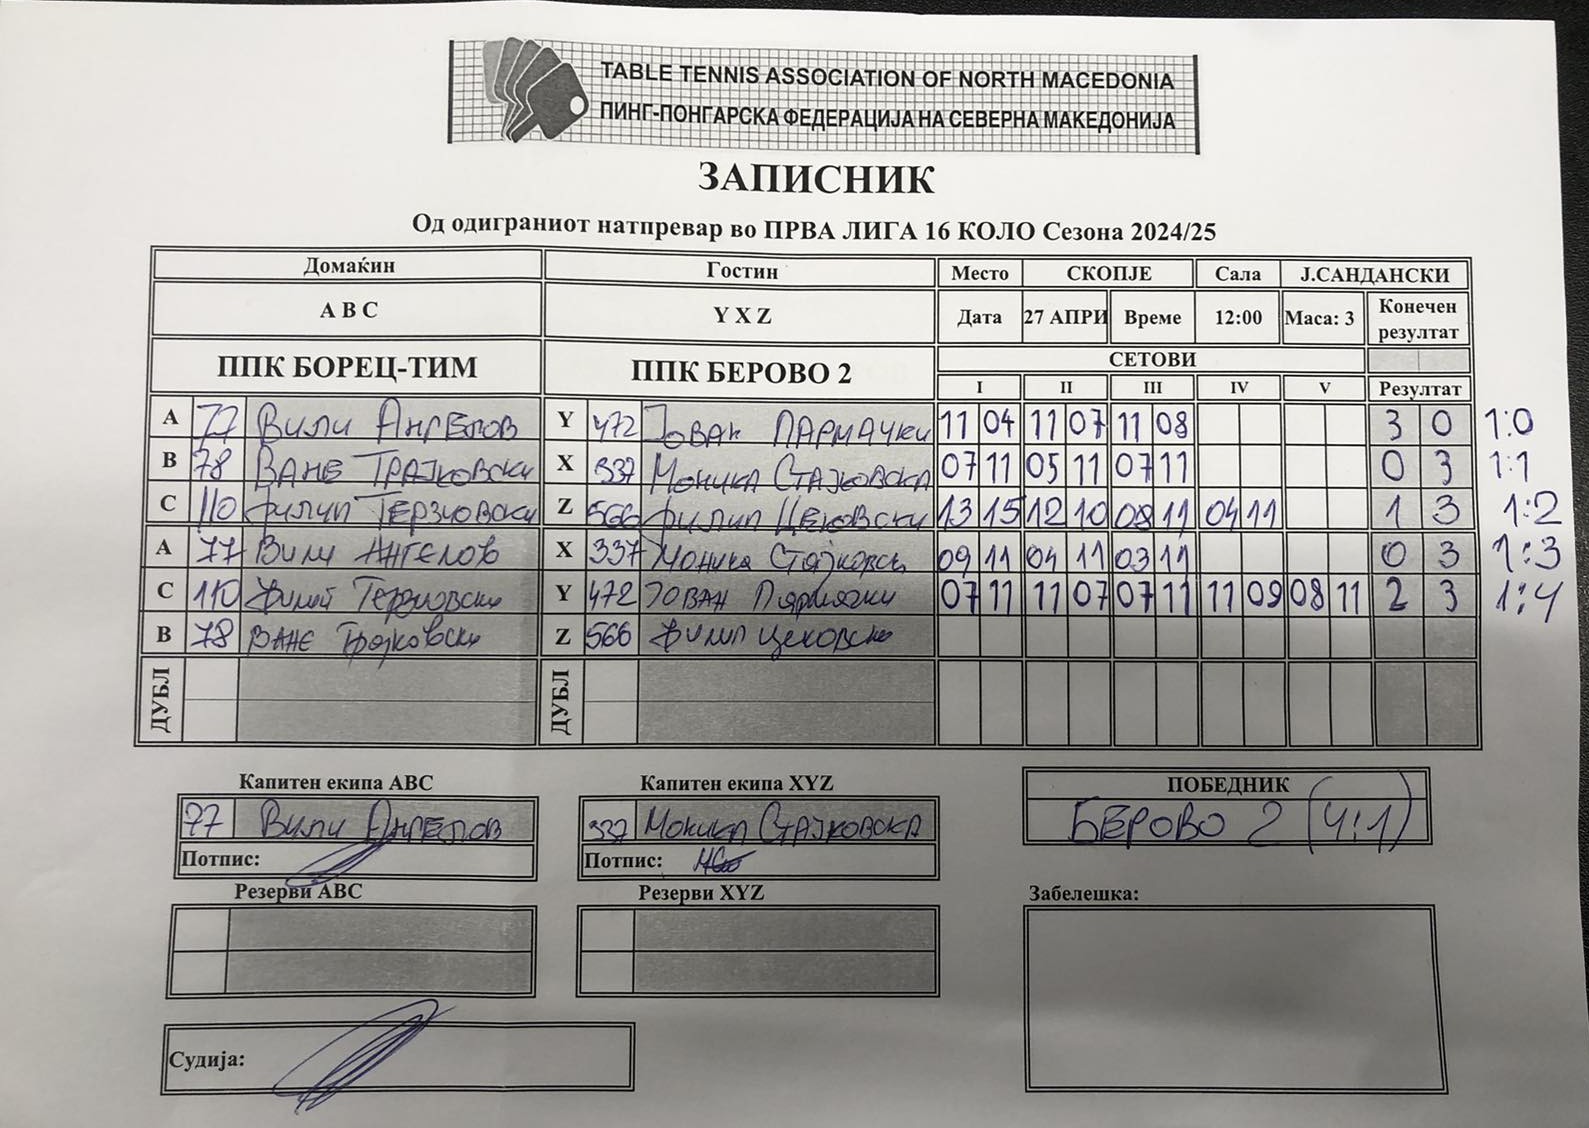 TABLE TENNIS ASSOCIATION OF NORTH MACEDONIA
ПИНГ-ПОНГАРСКА ФЕДЕРАЦИЈА НА СЕВЕРНА МАКЕДОНИЈА
ЗАПИСНИК
Од одиграниот натпревар во ПРВА ЛИГА 16 КОЛО Сезона 2024/25
Домаќин Гостин Место СКОПЈЕ Сала Ј.САНДАНСКИ
A B C Y X Z Дата 27 АПРИ Време 12:00 Маса: 3 Конечен резултат
ППК БОРЕЦ-ТИМ ППК БЕРОВО 2 СЕТОВИ
I II III IV V Резултат
A 77 Вили Ангелов Y 472 Јован Пармачки 11 04 11 07 11 08 3 0 1:0
B 78 Ване Трајковски X 337 Моника Стајковска 07 11 05 11 07 11 0 3 1:1
C 110 Филип Терзиовски Z 566 Филип Цековски 13 15 12 10 08 11 04 11 1 3 1:2
A 77 Вили Ангелов X 337 Моника 09 11 04 11 03 11 0 3 1:3
C 110 Терзиовски Y 472 Јован Пармачки 07 11 11 07 07 11 11 09 08 11 2 3 1:4
B 78 Ване Трајковски Z 566 Филип Цековски
ДУБЛ ДУБЛ
Капитен екипа ABC Капитен екипа XYZ ПОБЕДНИК
77 Вили Ангелов 337 Моника Стајковска БЕРОВО 2 (4:1)
Потпис: Потпис:
Резерви ABC Резерви XYZ Забелешка:
Судија: